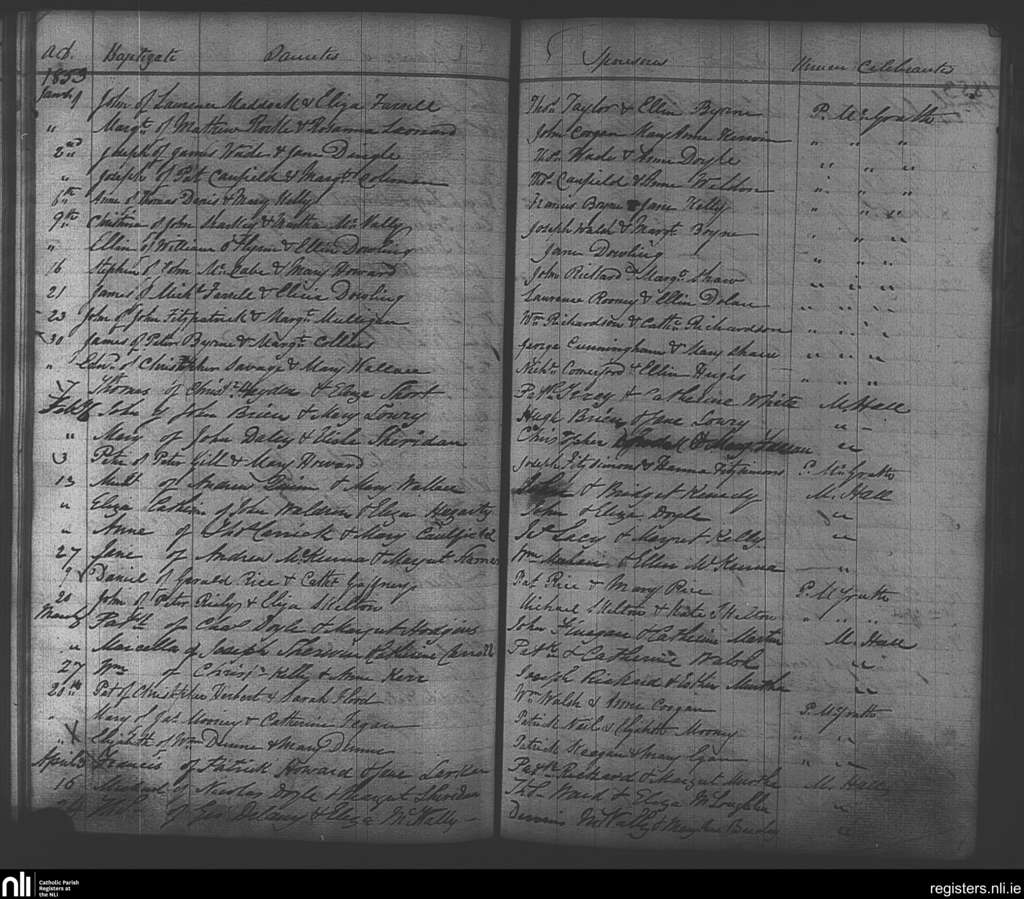 A.D. Baptizate Parentes Sponsores Nomen Celebrantis
1853
Jany 1 John of Laurence Maddock & Eliza Farrell Thos. Taylor & Ellen Byrne P. McGrath
" Margt. of Matthew Rorke & Rosanna Leonard John Coogan Mary Anne " " "
2nd Joseph of James Wade & Jane Dungle Thos. Wade & Anne Doyle " " "
" Joseph of Pat Caufield & Margt. Coleman Thos. Caufield & Anne Weldon " " "
6th Anne of Thomas Davis & Mary Kelly Francis Byrne & Jane Kelly " " "
9th Christina of John Sharkey & Martha McNally Joseph Walsh & Margt. Boyne " " "
" Ellen of William O'Flynn & Ellen Dowling Jane Dowling " " "
16 Stephen of John McCabe & Mary Howard John Rickard Margt. Shaw " " "
21 James of Michl. Farrell & Elicia Dowling Laurence Rooney & Ellen Dolan " " "
23 John of John Fitzpatrick & Margt. Mulligan Wm Richardson & Cathe. Richardson " " "
30 James of Peter Byrne & Margt. Collins George Cunningham & Mary Shaw " " "
" Edwd. of Christopher Savage & Mary Wallace Nichs. Comerford & Ellen Hughs " " "
Thomas of Christr. Hayden & Eliza Short Patk. & Catherine White M. Hall
Feb 6 John of John Brien & Mary Lowry Hugh Brien & Jane Lowry " "
" Mary of John Daley & Sheridan Christopher & Mary "
13 Peter of Peter Gill & Mary Howard Joseph Fitzsimons & Hanna Fitzsimons P. McGrath
13 of Andrew Quinn & Mary Wallace & Bridget Kenedy M. Hall
" Eliza of John Waldron & Eliza Hegarty John & Eliza Doyle "
" Anne of Chas Carrick & Mary Caulfield Js. Lacy & Margret Kelly "
27 Jane of Andrew McKenna & Margret Wm & Ellen McKenna "
9 Daniel of Gerald Rice & Cathe Gaffney Pat Rice & Mary Rice P. McGrath
20 John of Peter Riely & Eliza Skelton Michael Skelton & Kate Skelton " " "
March Patk. of Chas Doyle & Margret Hodgins John Finagan & Catherine Martin M. Hall
" Marcella of Joseph Sherwin Catherine Carroll Patk. & Catherine Walsh "
27 Wm of Chrisr. Kelly & Anne Kerr Joseph Rickard & Esther Murtha "
20th Pat of Christopher Herbert & Sarah Flood Wm Walsh & Anne Coogan P. McGrath
" Mary of Jas. Mooney & Catherine Fegan Patrick Neil & Elizabeth Mooney " "
" Elizabeth of Wm Dunne & Mary Dunne Patrick Keagan & Mary Egan " "
April 3 Francis of Patrick Howard & Jane Larkin Patk. Rickard & Margret Murtha M. Hall
16 Michael of Nicholas Doyle & Margret Sheridan Thos. Ward & Eliza McLoughlin "
24 Thos. of Geo Delany & Eliza McNally Dennis McNally & Mary Anne "
nli Catholic Parish Registers at the NLI
registers.nli.ie